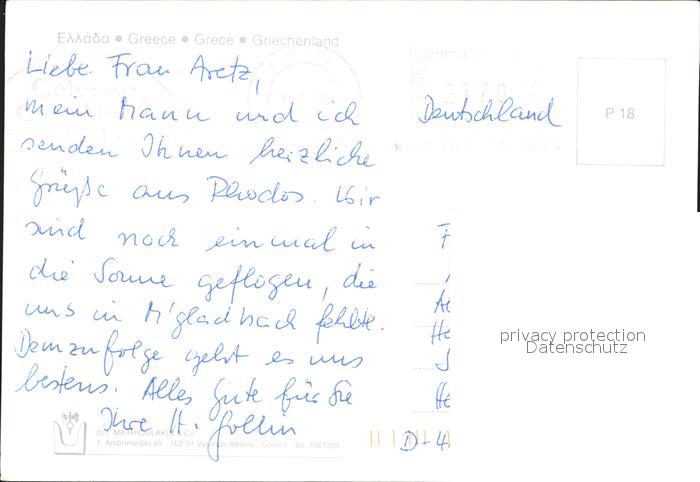 Ελλάδα • Greece • Grece • Griechenland
Liebe Frau Aretz,
mein Mann und ich
senden Ihnen herzliche
Grüße aus Rhodos. Wir
sind noch einmal in
die Sonne geflogen, die
uns in M'gladbach fehlte.
Demzufolge geht es uns
bestens. Alles Gute für Sie
Ihre H. Gollin
Deutschland
P 18
privacy protection
Datenschutz
D-4
1. Andromedas str. 162 31 Vyronas Athens - Greece tel. 7661351